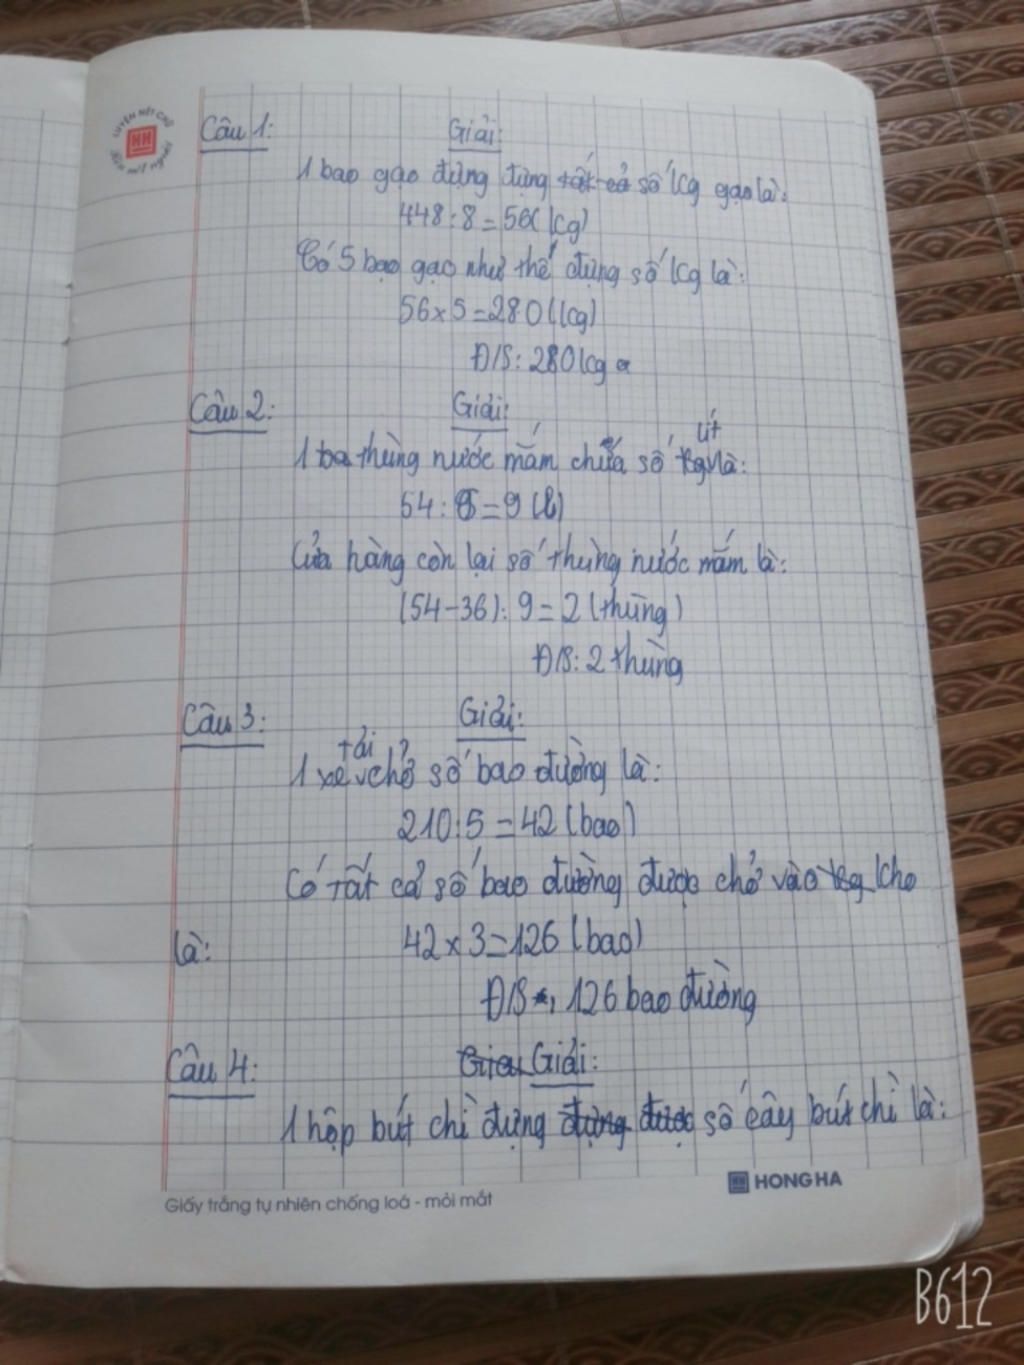 LUYỆN NÉT CHỮ
Rèn nét người
Câu 1:
Giải:
1 bao gạo đựng đựng tất cả số kg gạo là:
448 : 8 = 56 (kg)
Có 5 bao gạo như thế đựng số kg là:
56 x 5 = 280 (kg)
Đ/S: 280 kg
Câu 2:
Giải:
lít
1 ba thùng nước mắm chứa số kg là:
54 : 6 = 9 (l)
Cửa hàng còn lại số thùng nước mắm là:
(54 - 36) : 9 = 2 (thùng)
Đ/S: 2 thùng
Câu 3:
Giải:
tải
1 xe chở số bao đường là:
210 : 5 = 42 (bao)
Có tất cả số bao đường được chở vào kg kho
là:
42 x 3 = 126 (bao)
Đ/S: 126 bao đường
Câu 4:
Giải:
1 hộp bút chì đựng đựng được số cây bút chì là:
HONG HA
Giấy trắng tự nhiên chống loá - mỏi mắt
B612